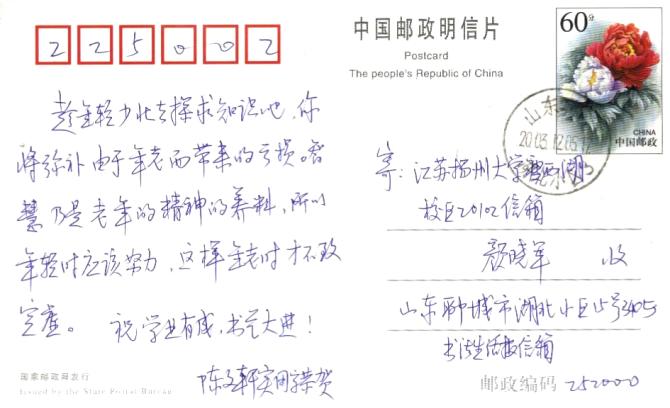 225002
中国邮政明信片
Postcard
The people's Republic of China
60分
CHINA
中国邮政
山东
2003.12.05
趁年轻少壮去探求知识吧，你
将弥补由于年老而带来的亏损。智
慧乃是老年的精神的养料，所以
年轻时应该努力，这样年老时才不致
空虚。 祝学业有成，书艺大进！
寄：江苏扬州大学瘦西湖
校区20102信箱
颜晓军 收
山东聊城市湖北小区15号3405
书法生活报信箱
邮政编码 252000
国家邮政局发行
Issued by the State Postal Bureau